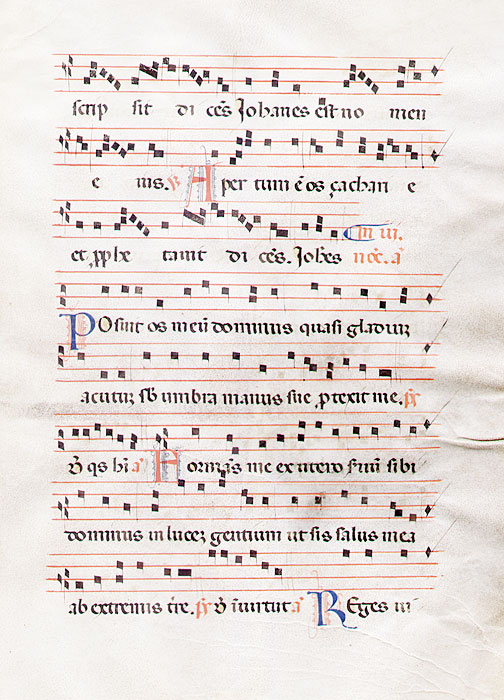 scrip sit di cēs Iohanes est no men
e ius. ℣ Aper tum ē os zachari e
et pphe tavit di cēs. Iohēs In iii. noc̄. a̅
Posuit os meū dominus quasi gladium
acutū sb umbra manus sue protexit me. p̅s̅
a̅ Formās me ex utero suū sibi
dominus in lucez gentium ut sis salus mea
ab extremis tr̄e. p̅s̅ D̄ i virtut a̅ Reges vi